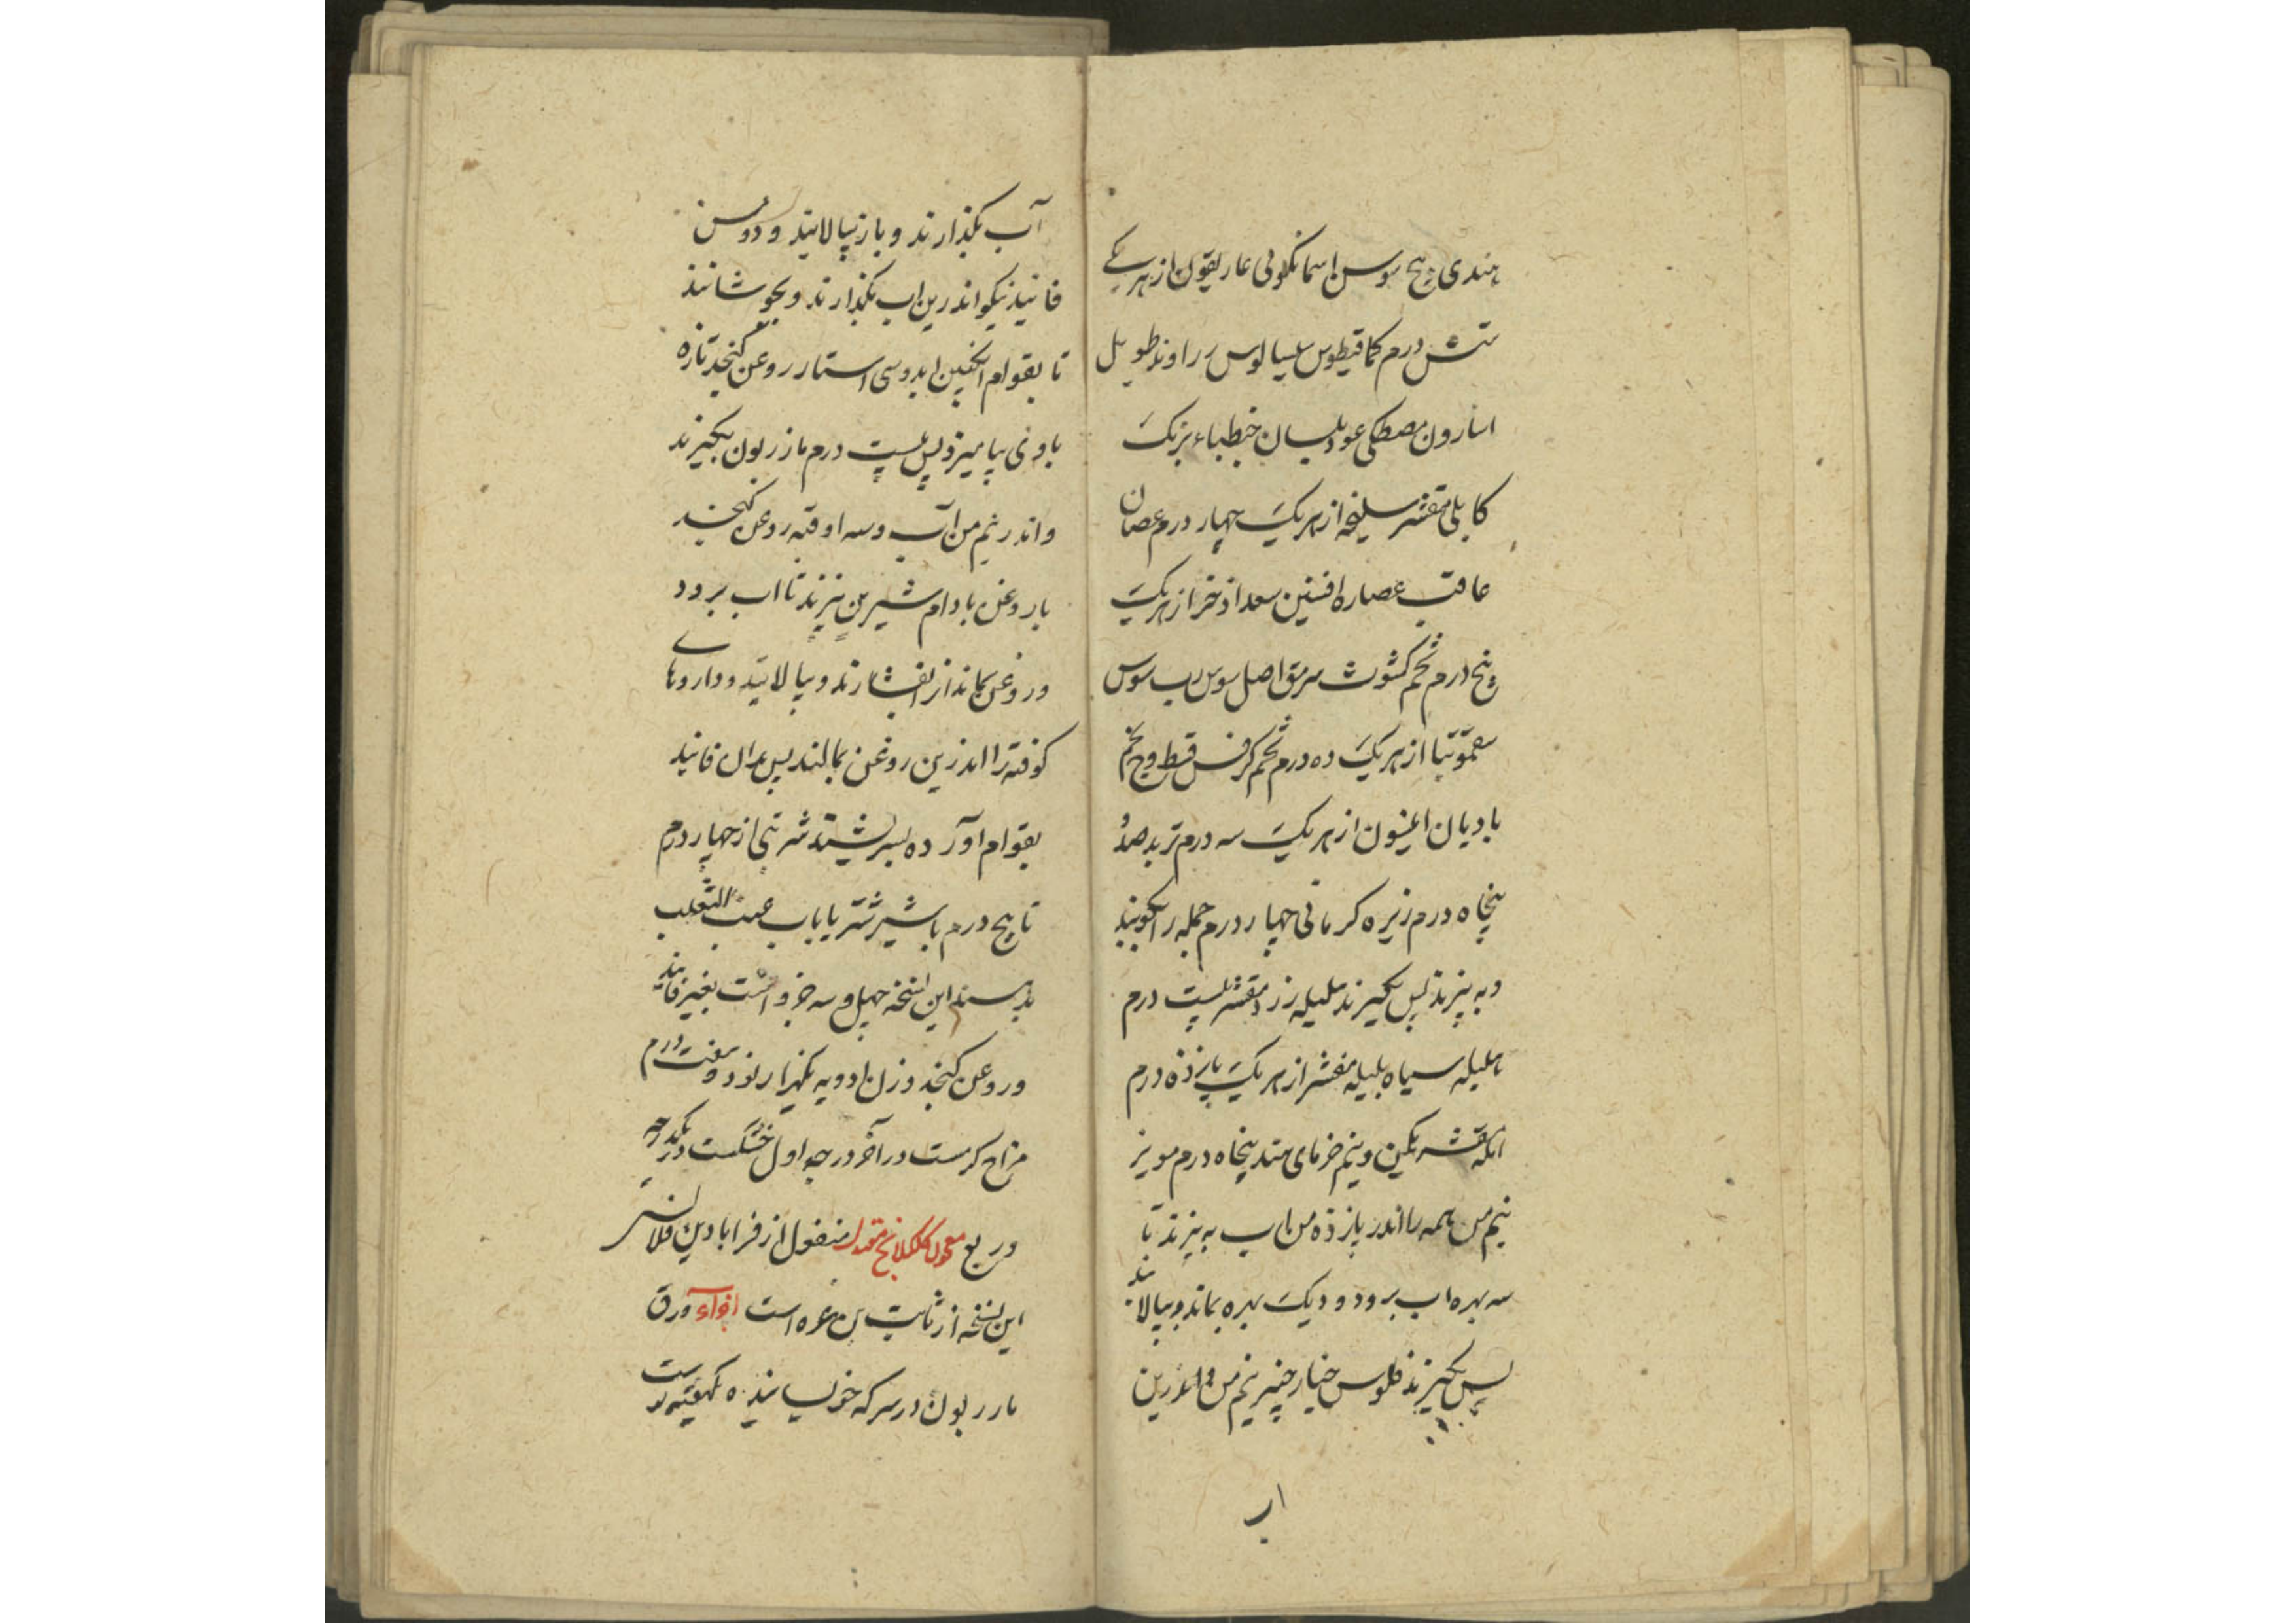 هندی بیخ سوسن اسمانگونی غاریقون از هر یکے
شش درم کمافیطوس سیسالیوس زراوند طویل
اسارون مصطکی عود بلسان برنک
کابلی مقشر سلیخه از هر یک چهار درم عصاره
غافت عصاره افسنتین سعد اذخر از هر یک
پنج درم تخم کشوث سرمق اصل سوس رب سوس
سقمونیا از هر یک ده درم تخم کرفس قسط و تخم
بادیان انیسون از هر یک سه درم تربد صد و
پنجاه درم زیره کرمانی چهار درم جمله را بکوبند
و به بیزند پس بگیرند هلیله زرد مقشر بیست درم
هلیله سیاه بلیله مقشر از هر یک پانزده درم
یکمن و نیم خرمای هند پنجاه درم مویز
نیم من همه را اندر پانزده من اب به پزند تا
سه بهره اب برود و یک بهره بماند و بپالایند
پس بگیرند فلوس خیار چنبر نیم من و اندرین
اب
آب بگذارند و باز بپالایند و دو من
فانیذ نیکو اندرین اب بگذارند و بجوشانند
تا بقوام انگبین اید و سی استار روغن کنجد تازه
با وی بیامیزد پس بیست درم مازریون بگیرند
و اندر نیم من آب و سه اوقیه روغن کنجد
با روغن بادام شیرین بپزند تا اب برود
و روغن بماند از افشارند و بپالایند و داروهای
کوفته را اندرین روغن بمالند پس بدان فانیذ
بقوام اورده بسرشند شربتی از چهار درم
تا پنج درم با شیر شتر یا باب عنب الثعلب
بدهند این نسخه چهل و سه جزو است بغیر فانیذ
و روغن کنجد وزن ادویه یکهزار نود و هفت درم
مزاج گرمست در آخر درجه اول خشکست در یکدرجه
و ربع معجون کلکلانج معتدل منقول از قرابادین قلانسی
این نسخه از ثابت بن قره است اجزاء ورق
مازریون در سرکه خیسانیده یکهفته